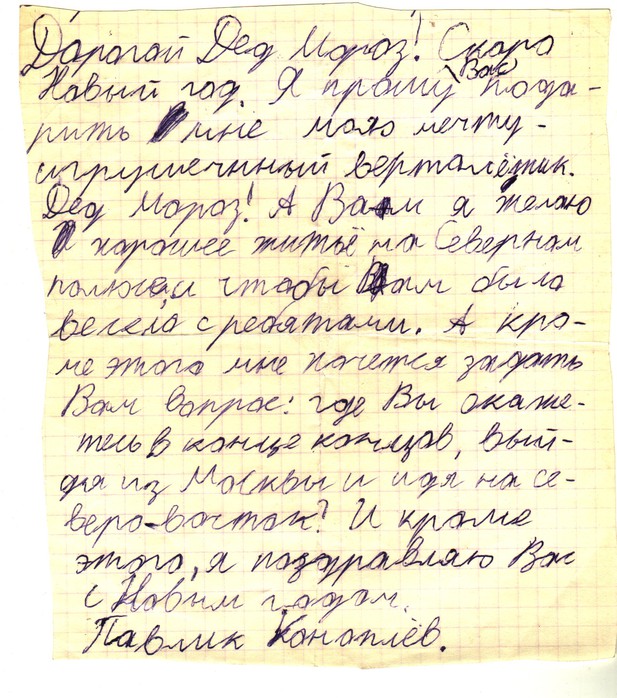 Дарагой Дед Мороз! Скоро
Новый год. Я прошу Вас пода-
рить мне мою мечту -
игрушечнный вертолётик.
Дед Мороз! А Вам я желаю
харошее житьё на Северном
полюсе, и чтобы Вам было
весело с ребятами. А кро-
ме этого мне хочется задать
Вам вопрос: где Вы окаже-
тесь в конце концов, вый-
дя из Москвы и идя на се-
веро-восток? И кроме
этого, я поздравляю Вас
с Новым годом.
Павлик Коноплёв.